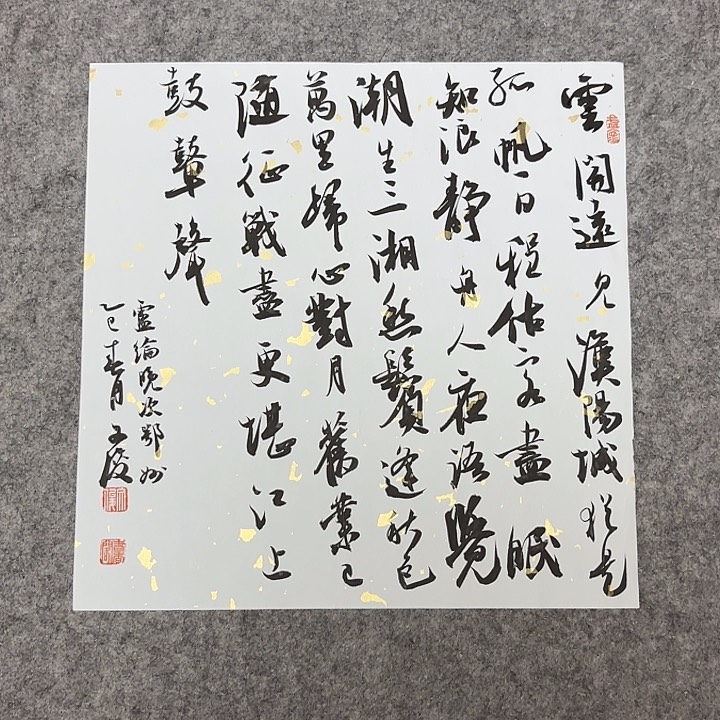 雲開遠見漢陽城猶是
孤帆一日程估客盡眠
知浪靜舟人夜語覺
潮生三湘愁鬢逢秋色
萬里歸心對月舊業已
隨征戰盡更堪江上
鼓鼙聲
盧綸晚次鄂州
乙巳春月王俊